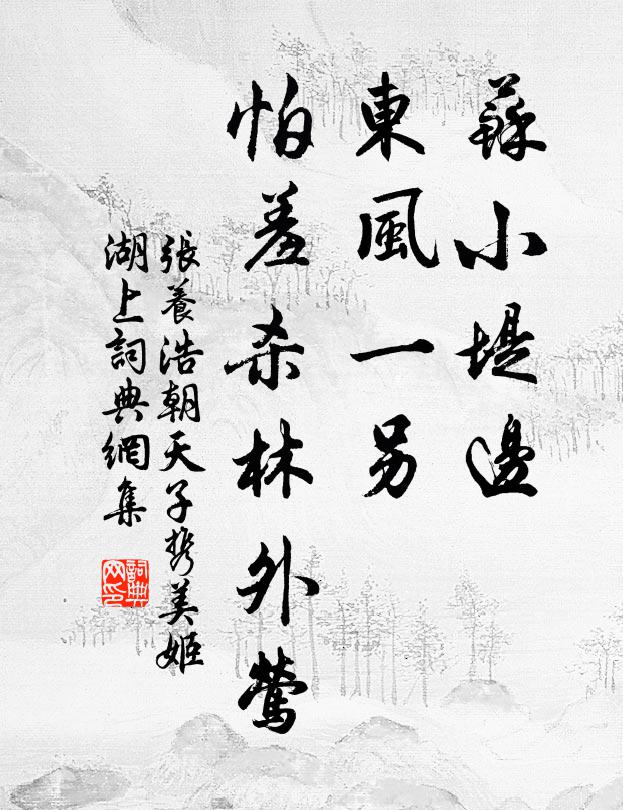 蘇小堤邊
東風一另
怕羞杀林外莺
張養浩朝天子携美姬
湖上詞典網集
詞典網印